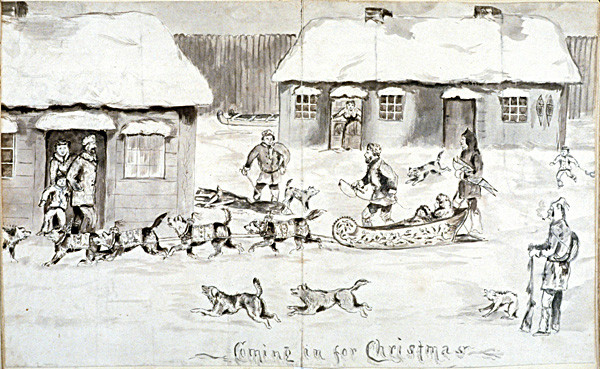 Coming in for Christmas